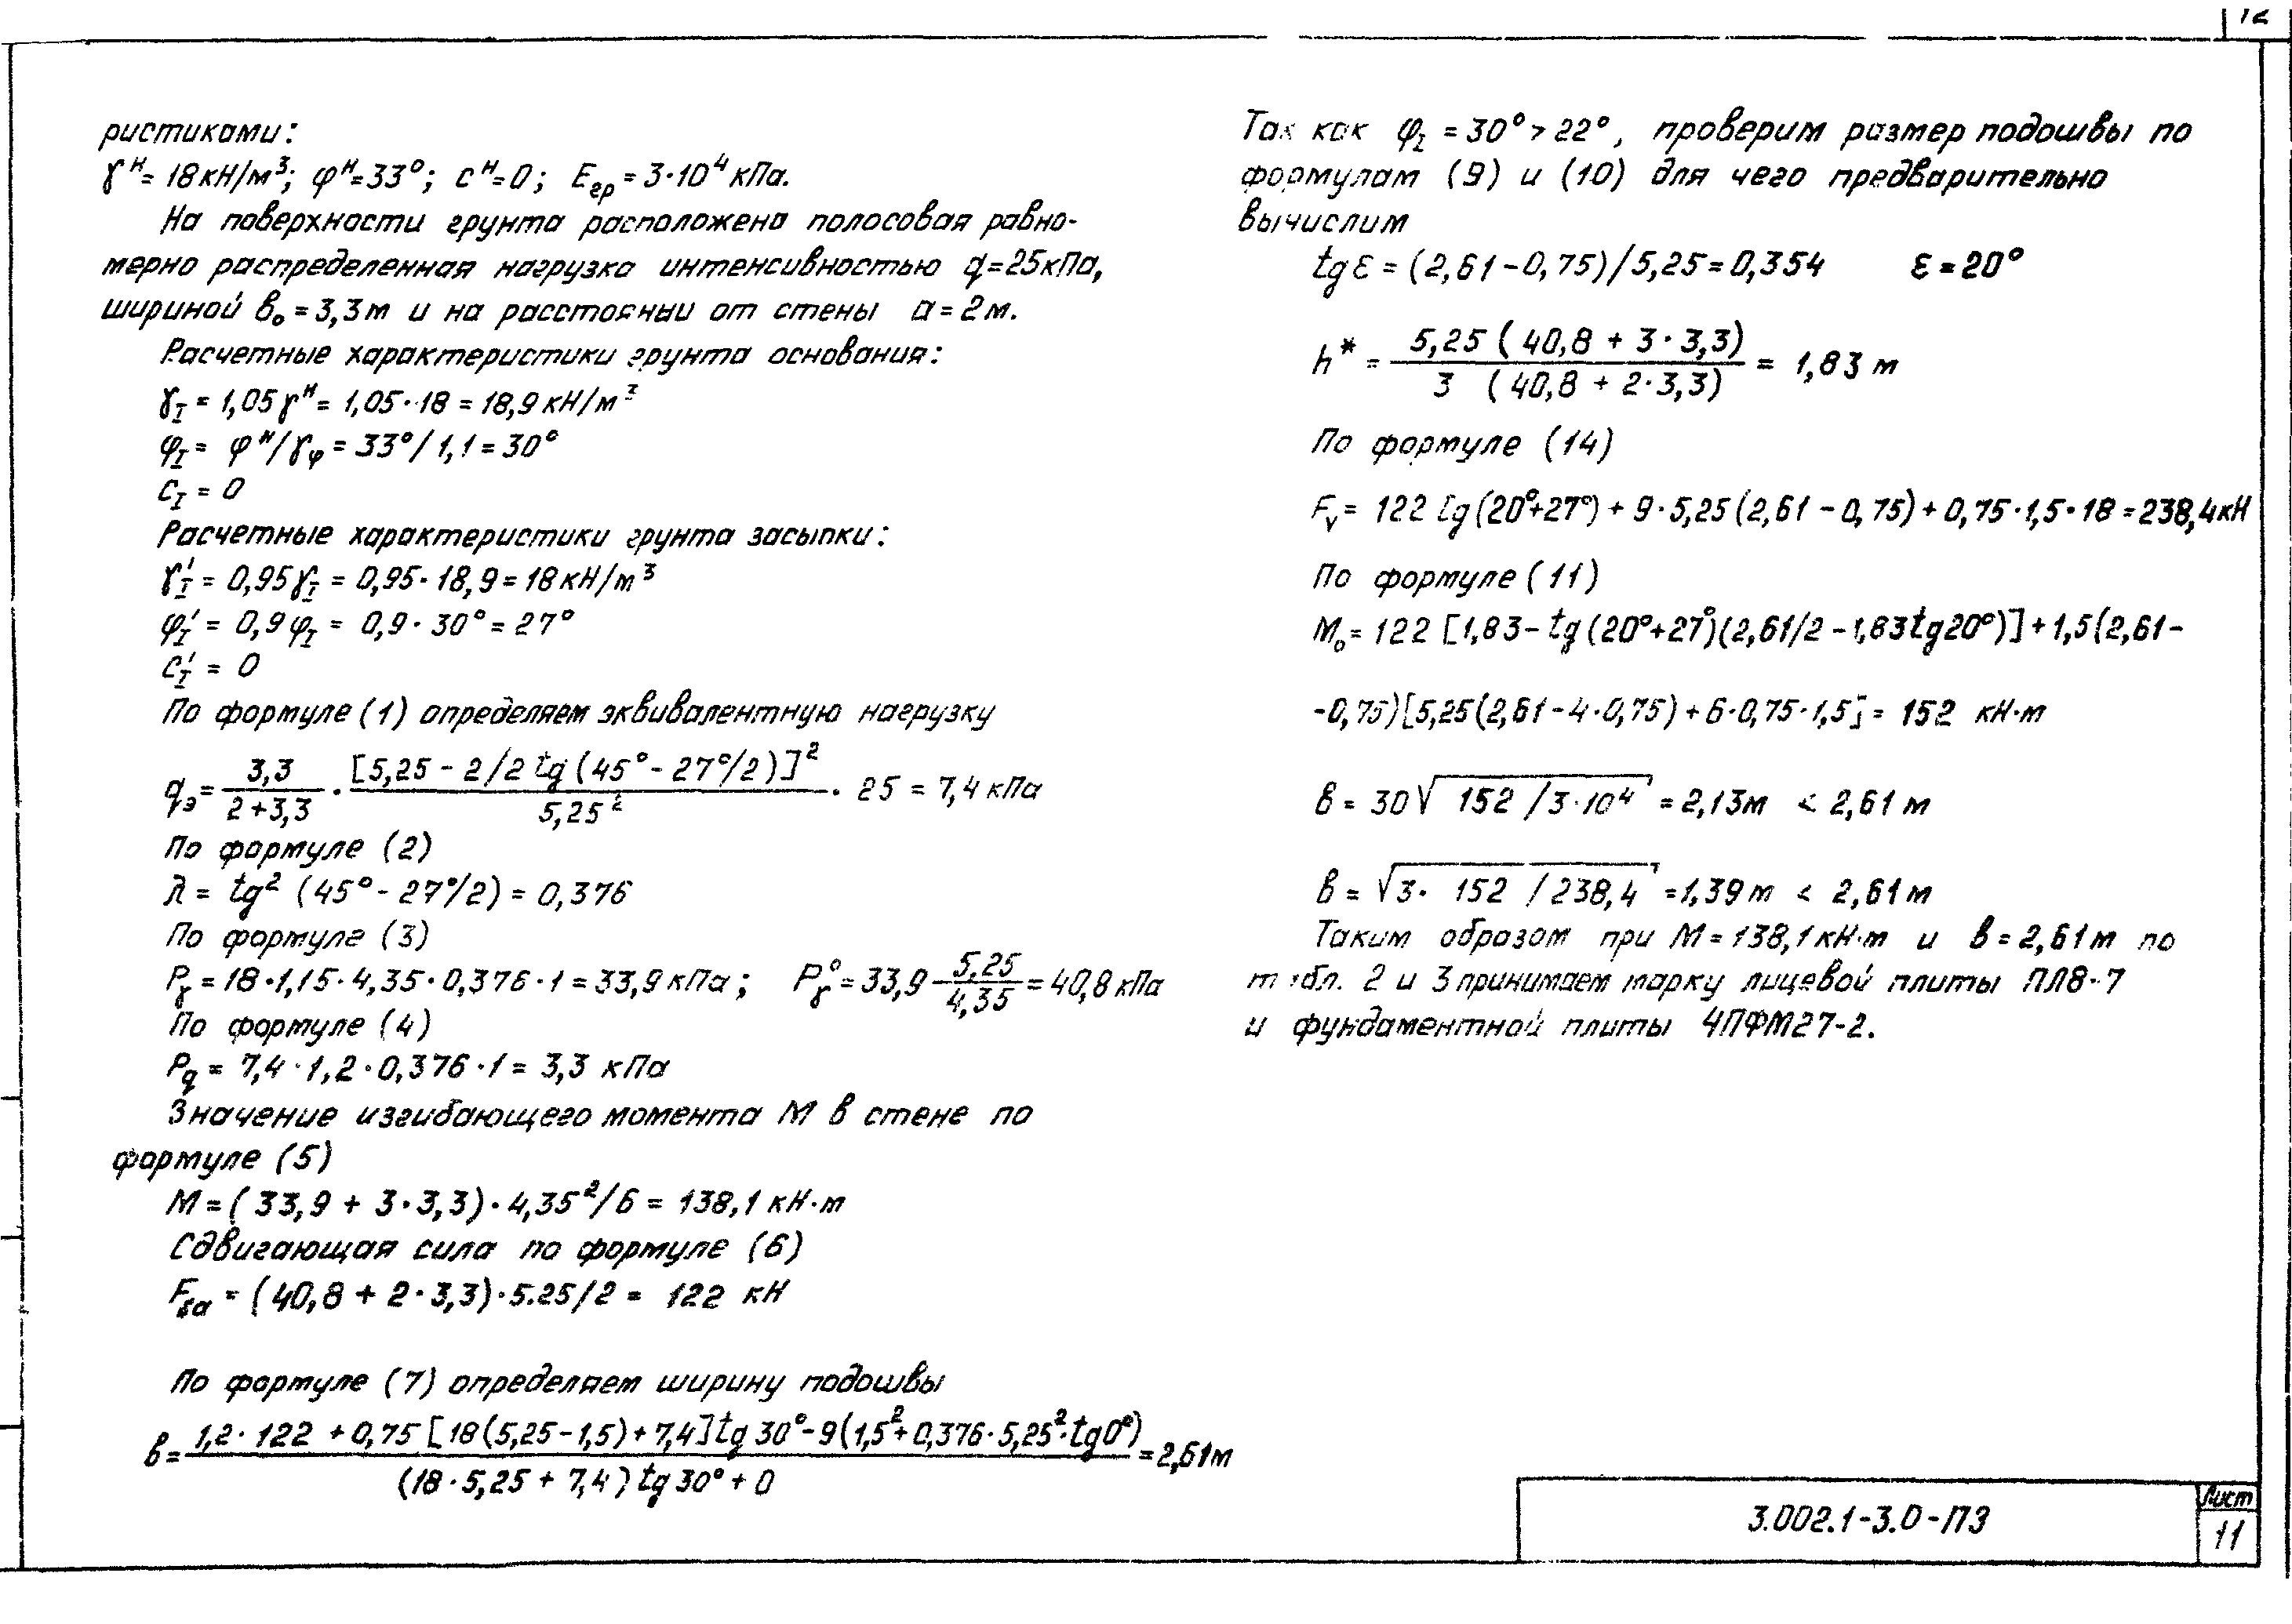 12
ристиками:
γᴴ = 18 кН/м³; φᴴ = 33°; cᴴ = 0; Eгр = 3·10⁴ кПа.
На поверхности грунта расположена полосовая равно-
мерно распределенная нагрузка интенсивностью q = 25 кПа,
шириной в₀ = 3,3 м и на расстоянии от стены a = 2 м.
Расчетные характеристики грунта основания:
γ_I = 1,05 γᴴ = 1,05·18 = 18,9 кН/м³
φ_I = φᴴ/γ_φ = 33°/1,1 = 30°
c_I = 0
Расчетные характеристики грунта засыпки:
γ'_I = 0,95 γ_I = 0,95·18,9 = 18 кН/м³
φ'_I = 0,9 φ_I = 0,9·30° = 27°
c'_I = 0
По формуле (1) определяем эквивалентную нагрузку
qэ = 3,3/(2+3,3) · [5,25 - 2/2 tg (45° - 27°/2)]²/5,25² · 25 = 7,4 кПа
По формуле (2)
λ = tg² (45° - 27°/2) = 0,376
По формуле (3)
P_γ = 18·1,15·4,35·0,376·1 = 33,9 кПа; P_γ° = 33,9 5,25/4,35 = 40,8 кПа
По формуле (4)
P_q = 7,4·1,2·0,376·1 = 3,3 кПа
Значение изгибающего момента М в стене по
формуле (5)
M = (33,9 + 3·3,3)·4,35²/6 = 138,1 кН·м
Сдвигающая сила по формуле (6)
F_sa = (40,8 + 2·3,3)·5.25/2 = 122 кН
По формуле (7) определяем ширину подошвы
в = (1,2·122 + 0,75 [18(5,25-1,5)+7,4] tg 30° - 9(1,5² + 0,376·5,25²·tg 0°))/((18·5,25 + 7,4) tg 30° + 0) = 2,61 м
Так как φ_I = 30° > 22°, проверим размер подошвы по
формулам (9) и (10) для чего предварительно
вычислим
tg ε = (2,61 - 0,75)/5,25 = 0,354 ε = 20°
h* = 5,25 (40,8 + 3·3,3)/3 (40,8 + 2·3,3) = 1,83 м
По формуле (14)
F_v = 122 tg (20°+27°) + 9·5,25 (2,61 - 0,75) + 0,75·1,5·18 = 238,4 кН
По формуле (11)
M₀ = 122 [1,83 - tg (20°+27°)(2,61/2 - 1,83 tg 20°)] + 1,5 (2,61 -
- 0,75)[5,25(2,61 - 4·0,75) + 6·0,75·1,5] = 152 кН·м
в = 30 √152 / 3·10⁴ = 2,13 м < 2,61 м
в = √3· 152 / 238,4 = 1,39 м < 2,61 м
Таким образом при М = 138,1 кН·м и в = 2,61 м по
табл. 2 и 3 принимаем марку лицевой плиты ПЛ8-7
и фундаментной плиты 4ПФМ27-2.
3.002.1-3.0-ПЗ
Лист
11